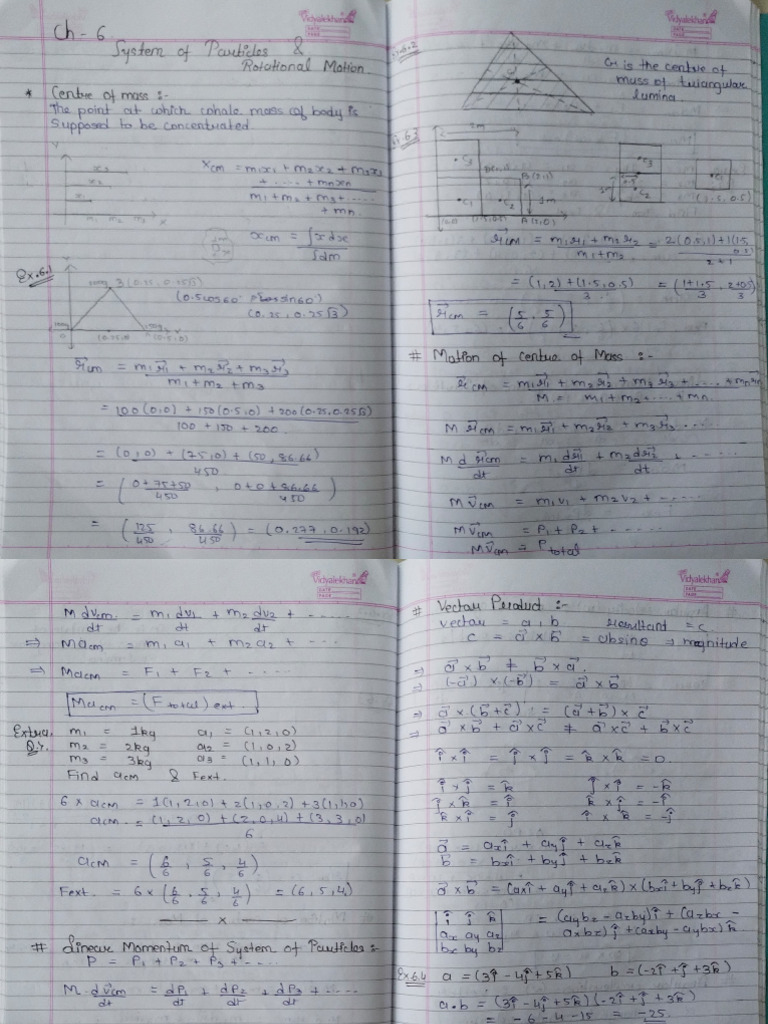 Ch - 6
System of Particles &
Rotational Motion.
* Centre of mass :-
The point at which whole mass of body is
Supposed to be concentrated
Xcm = m1x1 + m2x2 + m3x3
+ ..... + mnxn
m1 + m2 + m3 + ....
+ mn.
xcm = ∫x dx
∫dm
Ex.6.1
3 (0.25, 0.25√3)
(0.25, 0.25√3)
r⃗cm = m1r⃗1 + m2r⃗2 + m3r⃗3
m1 + m2 + m3
= 100(0,0) + 150(0.5,0) + 200(0.25,0.25√3)
100 + 150 + 200
= (0,0) + (75,0) + (50, 86.66)
450
= (0+75+50 , 0+0+86.66)
450 450
= (125 , 86.66) = (0.277, 0.192)
450 450
Vidyalekhan
G is the centre of
mass of triangular
lumina
C3
C1
C2
B(2,1)
1m
A(2,0)
C3
C2
C1
(1.5, 0.5)
r⃗cm = m1r1 + m2r2 = 2(0.5,1)+1(1.5,
0.5)
m1+m2 2+1
= (1,2)+(1.5,0.5) = (1+1.5, 2+0.5)
3 3 3
r⃗cm = (5/6, 5/6)
# Motion of centre of Mass :-
r⃗cm = m1r⃗1 + m2r⃗2 + m3r⃗3 + .... + mnr⃗n
M = m1 + m2 .... + mn.
M r⃗cm = m1r⃗1 + m2r⃗2 + m3r⃗3 ....
M d r⃗cm = m1 dr⃗1 + m2 dr⃗2 + .....
dt dt dt
M v⃗cm = m1v1 + m2v2 + .....
M v⃗cm = P1 + P2 + .....
M v⃗cm = Ptotal
Vidyalekhan
M dvcm = m1 dv1 + m2 dv2 + .....
dt dt dt
⇒ Macm = m1a1 + m2a2 + ...
⇒ Macm = F1 + F2 + ...
Macm = (Ftotal) ext.
Extra m1 = 1kg a1 = (1,2,0)
Q1. m2 = 2kg a2 = (1,0,2)
m3 = 3kg a3 = (1,1,0)
Find acm & Fext.
6 × acm = 1(1,2,0) + 2(1,0,2) + 3(1,1,0)
acm = (1,2,0) + (2,0,4) + (3,3,0)
6
acm = (6/6, 5/6, 4/6)
Fext. = 6 × (6/6, 5/6, 4/6) = (6,5,4)
x
# Linear Momentum of System of Particles :-
P = P1 + P2 + P3 + ....
M dv⃗cm = dP1 + dP2 + dP3 + ....
dt dt dt dt
Vidyalekhan
# Vector Product :-
vector = a, b resultant = c
c = a⃗ × b⃗ = absinθ → magnitude
⇒ a⃗ × b⃗ ≠ b⃗ × a⃗.
⇒ (-a⃗) × (-b⃗) = a⃗ × b⃗
⇒ a⃗ × (b⃗ + c⃗) = (a⃗ + b⃗) × c⃗
⇒ a⃗ × b⃗ + a⃗ × c⃗ ≠ a⃗ × c⃗ + b⃗ × c⃗
î × î = ĵ × ĵ = k̂ × k̂ = 0.
î × ĵ = k̂ ĵ × î = -k̂
ĵ × k̂ = î k̂ × ĵ = -î
k̂ × î = ĵ î × k̂ = -ĵ
a⃗ = axî + ayĵ + azk̂
b⃗ = bxî + byĵ + bzk̂
a⃗ × b⃗ = (axî + ayĵ + azk̂) × (bxî + byĵ + bzk̂)
î ĵ k̂ = (aybz - azby)î + (azbx -
ax ay az axbz)ĵ + (axby - aybx)k̂
bx by bz
Ex 6.4 a = (3î - 4ĵ + 5k̂) b = (-2î + ĵ + 3k̂)
a.b = (3î - 4ĵ + 5k̂)(-2î + ĵ + 3k̂)
= -6 - 4 - 15 = -25.
Vidyalekhan